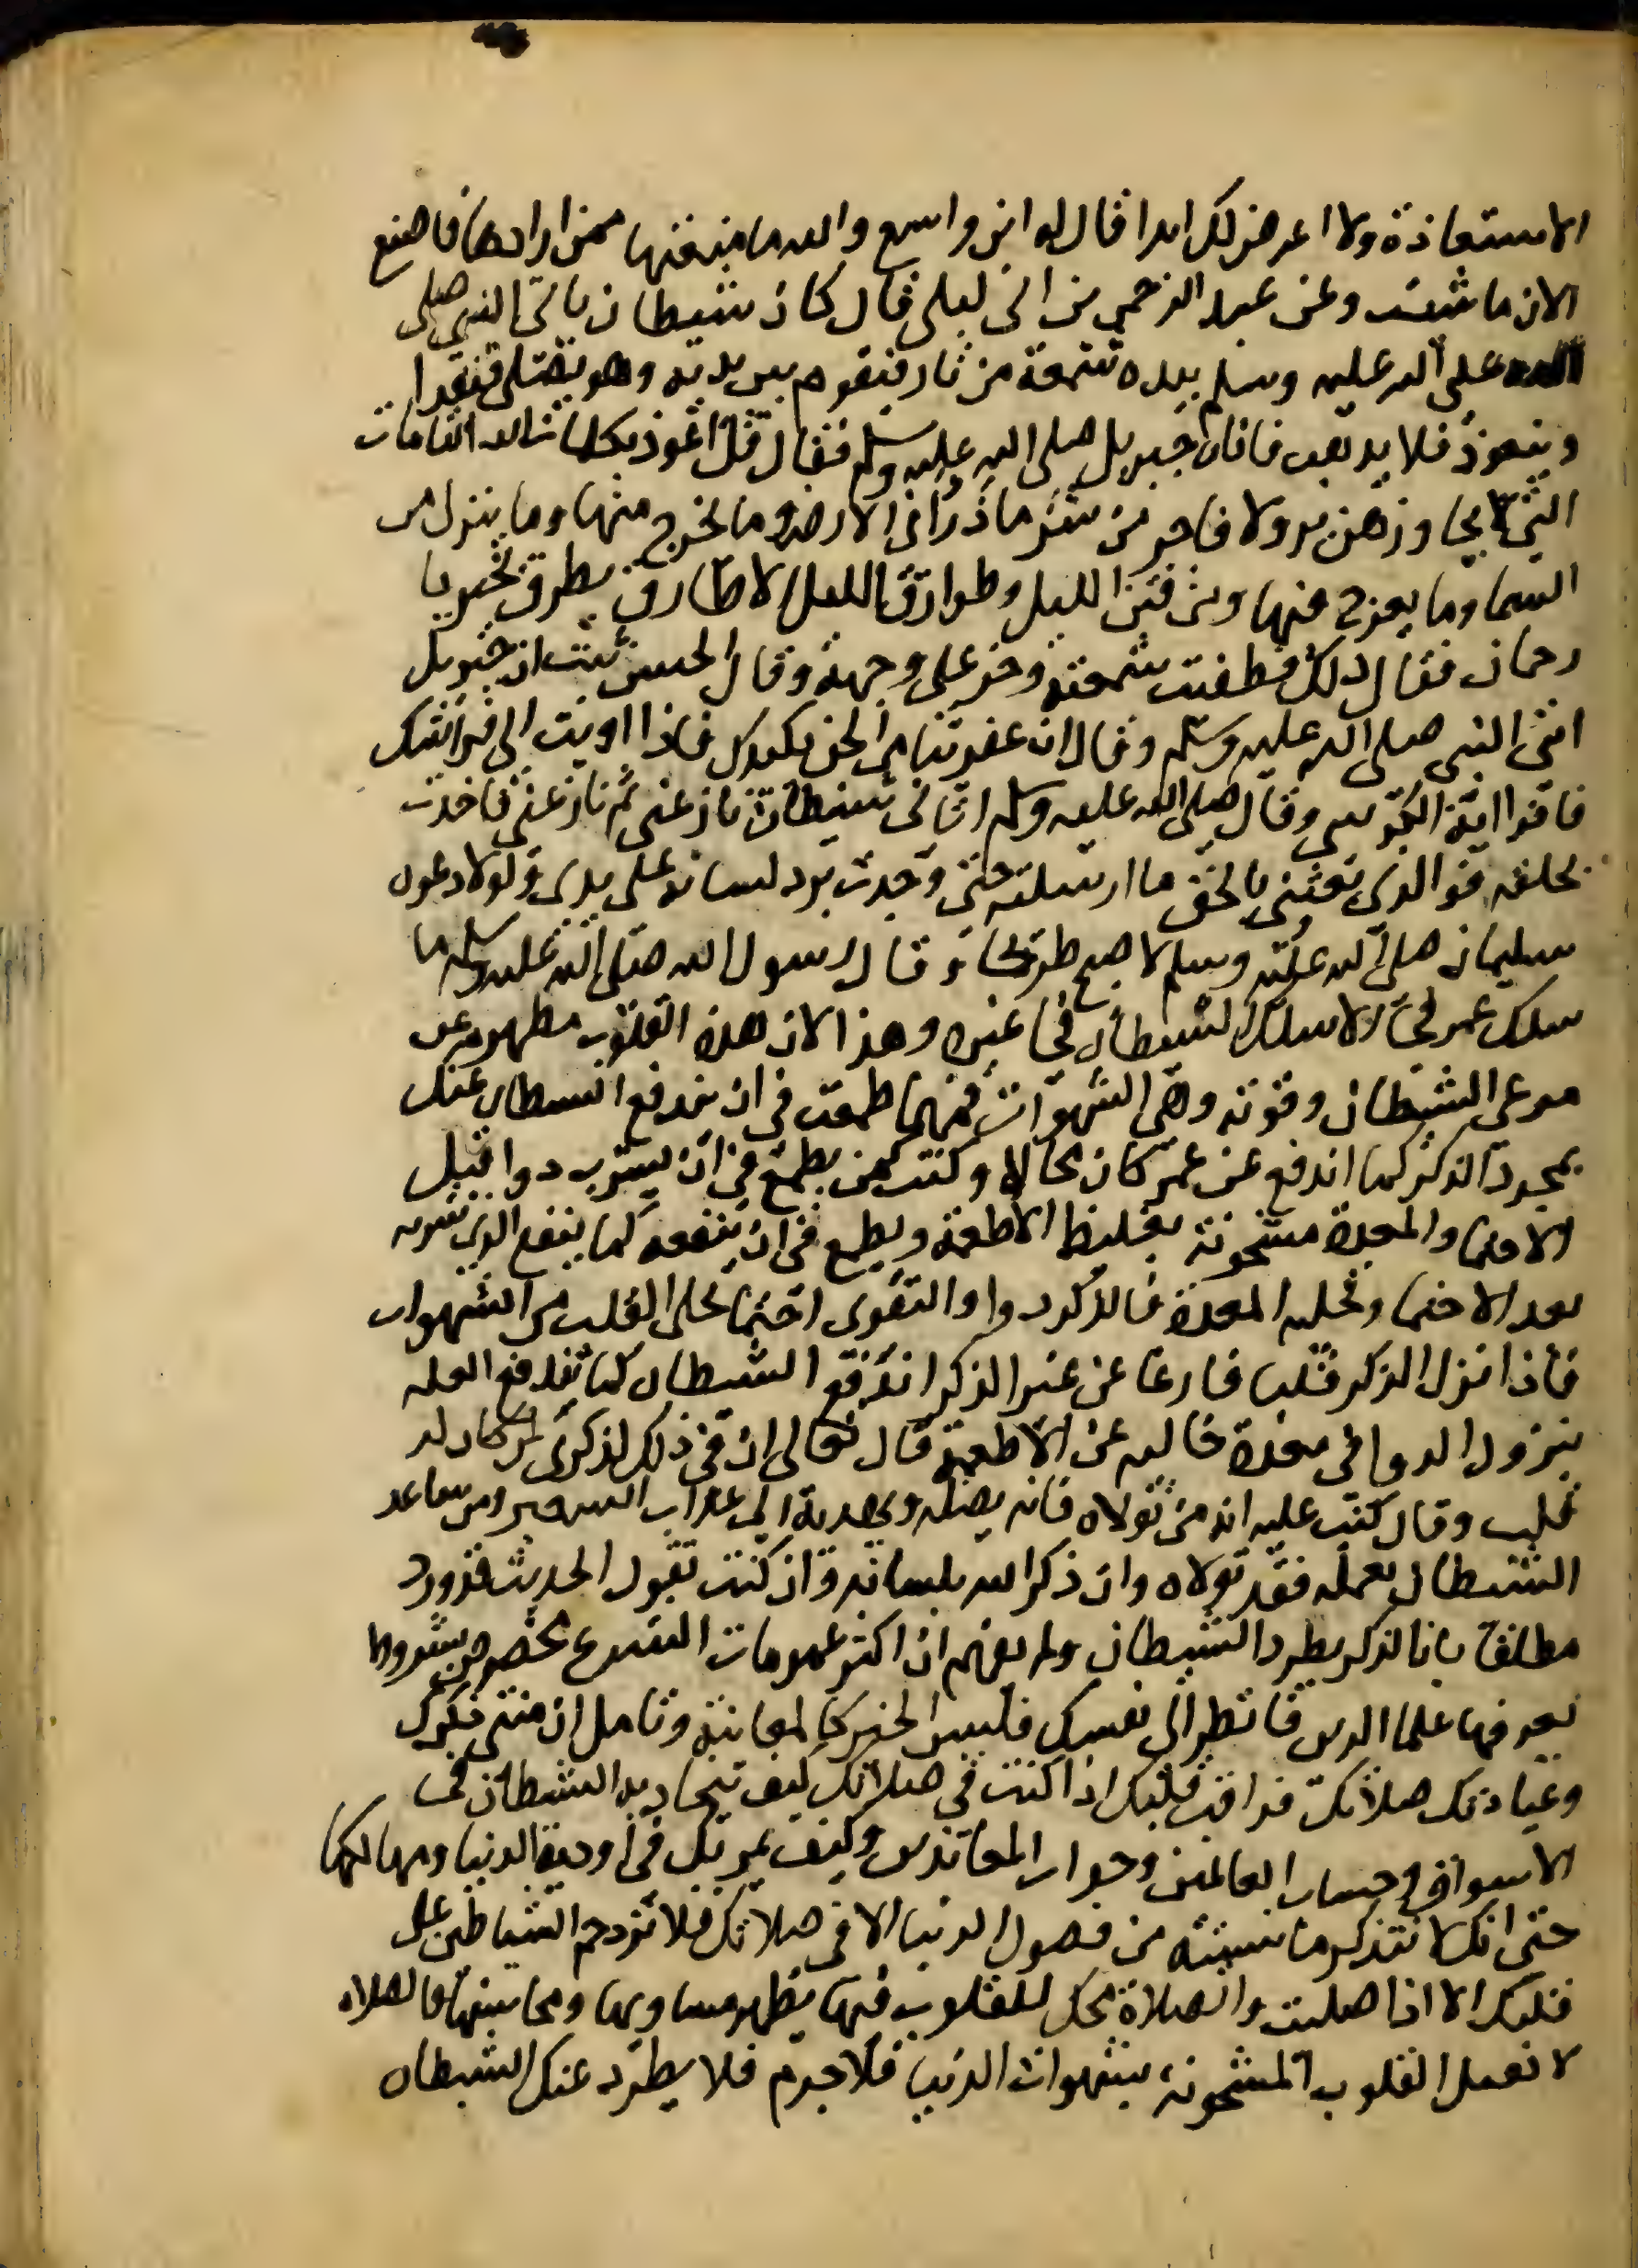 الاستعاذة ولا اعرض لك ابدا فقال له ابن واسع والله ما منعتها ممن ارادها فاصنع
الان ما شئت وعن عبد الرحمن بن ابى ليلى قال كان شيطان ياتى النبى صلى
صلى الله عليه وسلم بيده شعمة من نار فيقوم بين يديه وهو يصلى فيقرا
ويتعوذ فلا يذهب فاتاه جبريل صلى الله عليه وسلم فقال قل اعوذ بكلمات الله التامات
التى لا يجاوزهن بر ولا فاجر من شر ما ذرا فى الارض وما يخرج منها وما ينزل من
السما وما يعرج فيها ومن فتن الليل وطوارق الليل الا طارق يطرق بخير يا
رحمان فقال ذلك فطفئت شمعته وخر على وجهه وقال الحسن نبئت ان جبريل
اتى النبى صلى الله عليه وسلم وقال ان عفريتا من الجن يكيدك فاذا اويت الى فراشك
فاقرا اية الكرسى وقال صلى الله عليه وسلم اتانى شيطان نازعنى ثم نازعنى فاخذت
بحلقه فو الذى بعثنى بالحق ما ارسلته حتى وجدت برد لسانه على يدى ولولا دعوه
سليمان صلى الله عليه وسلم لاصبح طريحا وقال رسول الله صلى الله عليه وسلم ما
سلك عمر فجا الا سلك الشيطان فجا غيره وهذا لان هذه القلوب مطهره عن
مرعى الشيطان وقوته وهى الشهوات فمهما طمعت فى ان يندفع الشيطان عنك
بمجرد الذكر كما اندفع عن عمر كان محالا وكنت كمن يطمع فى ان يشرب دوا قبل
الاحتما والمعدة مشحونة بغليظ الاطعمة ويطمع فى ان ينفعه كما ينفع الذى شربه
بعد الاحتما وتخليه المعدة فالذكر دوا والتقوى احتما تخلى القلب من الشهوات
فاذا نزل الذكر قلبا فارغا عن غير الذكر اندفع الشيطان كما تندفع العله
بنزول الدوا فى معدة خاليه عن الاطعمة قال تعالى ان فى ذلك لذكرى لمن كان له
قلب وقال كتب عليه انه من تولاه فانه يضله ويهديه الى عذاب السعير ومن ساعد
الشيطان بعمله فقد تولاه وان ذكر الله بلسانه وان كنت تقول الحديث قد ورد
مطلقا بان الذكر يطرد الشيطان ولم تفهم ان اكثر عمومات الشرع مخصوص بشروط
يعرفها علما الدين فانظر الى نفسك فليس الخبر كالمعاينة وتامل ان منتهى ذكرك
وعبادتك صلاتك فراقب قلبك اذا كنت فى صلاتك كيف تجاذبه الشيطان الى
الاسواق وحساب العالمين وجواب المعاندين وكيف يمر بك فى اودية الدنيا ومهالكها
حتى انك لا تتذكر ما نسيته من فضول الدنيا الا فى صلاتك فلا تزدحم الشياطين على
قلبك الا اذا صليت والصلاة محك للقلوب فيها يظهر مساويها ومحاسنها فالصلاه
لا تعمل القلوب المشحونة بشهوات الدنيا فلا جرم فلا يطرد عنك الشيطان